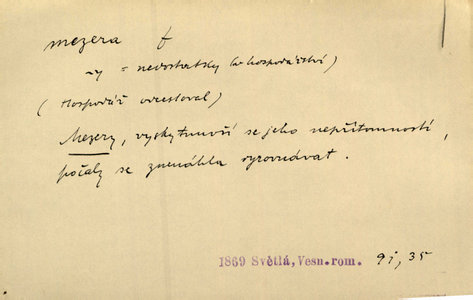 mezera f
-y = nedostatky (v hospodářství)
(Hospodář odcestoval)
Mezery, vyskytnuvší se jeho nepřítomností,
počaly se znenáhla vyrovnávat.
1869 Světlá, Vesn. rom. 91, 35